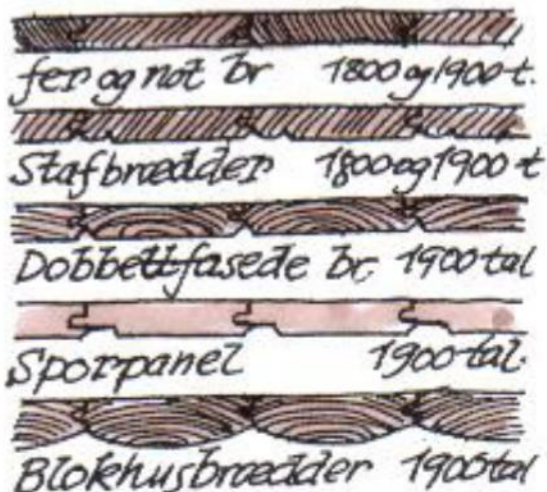 fer og not br 1800 og 1900-t.
Stafbrædder 1800 og 1900-t
Dobbeltfasede br. 1900 tal
Sporpanel 1900-tal.
Blokhusbrædder 1900 tal